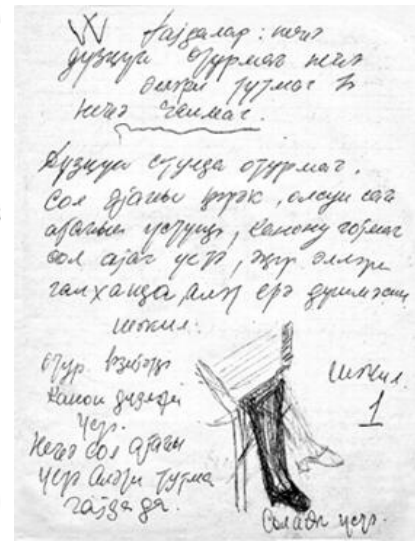 Гајдалар: нечә
дүзҝүн отурмаг нечә
әлләри тутмаг вә
нечә чалмаг.
Дүзҝүн стулда отурмаг.
Сол ајағы ҝәрәк, олсун сағ
ајағын үстүндә, канону гојмаг
сол ајаг үстә, әҝәр әлләри
галханда, аләт јерә дүшмәсин
шәкил:
отур.
Канон дизләри
үстә.
Нечә сол ајағы
үстә аләти тутма
гајда да.
шәкил
1
үстә.